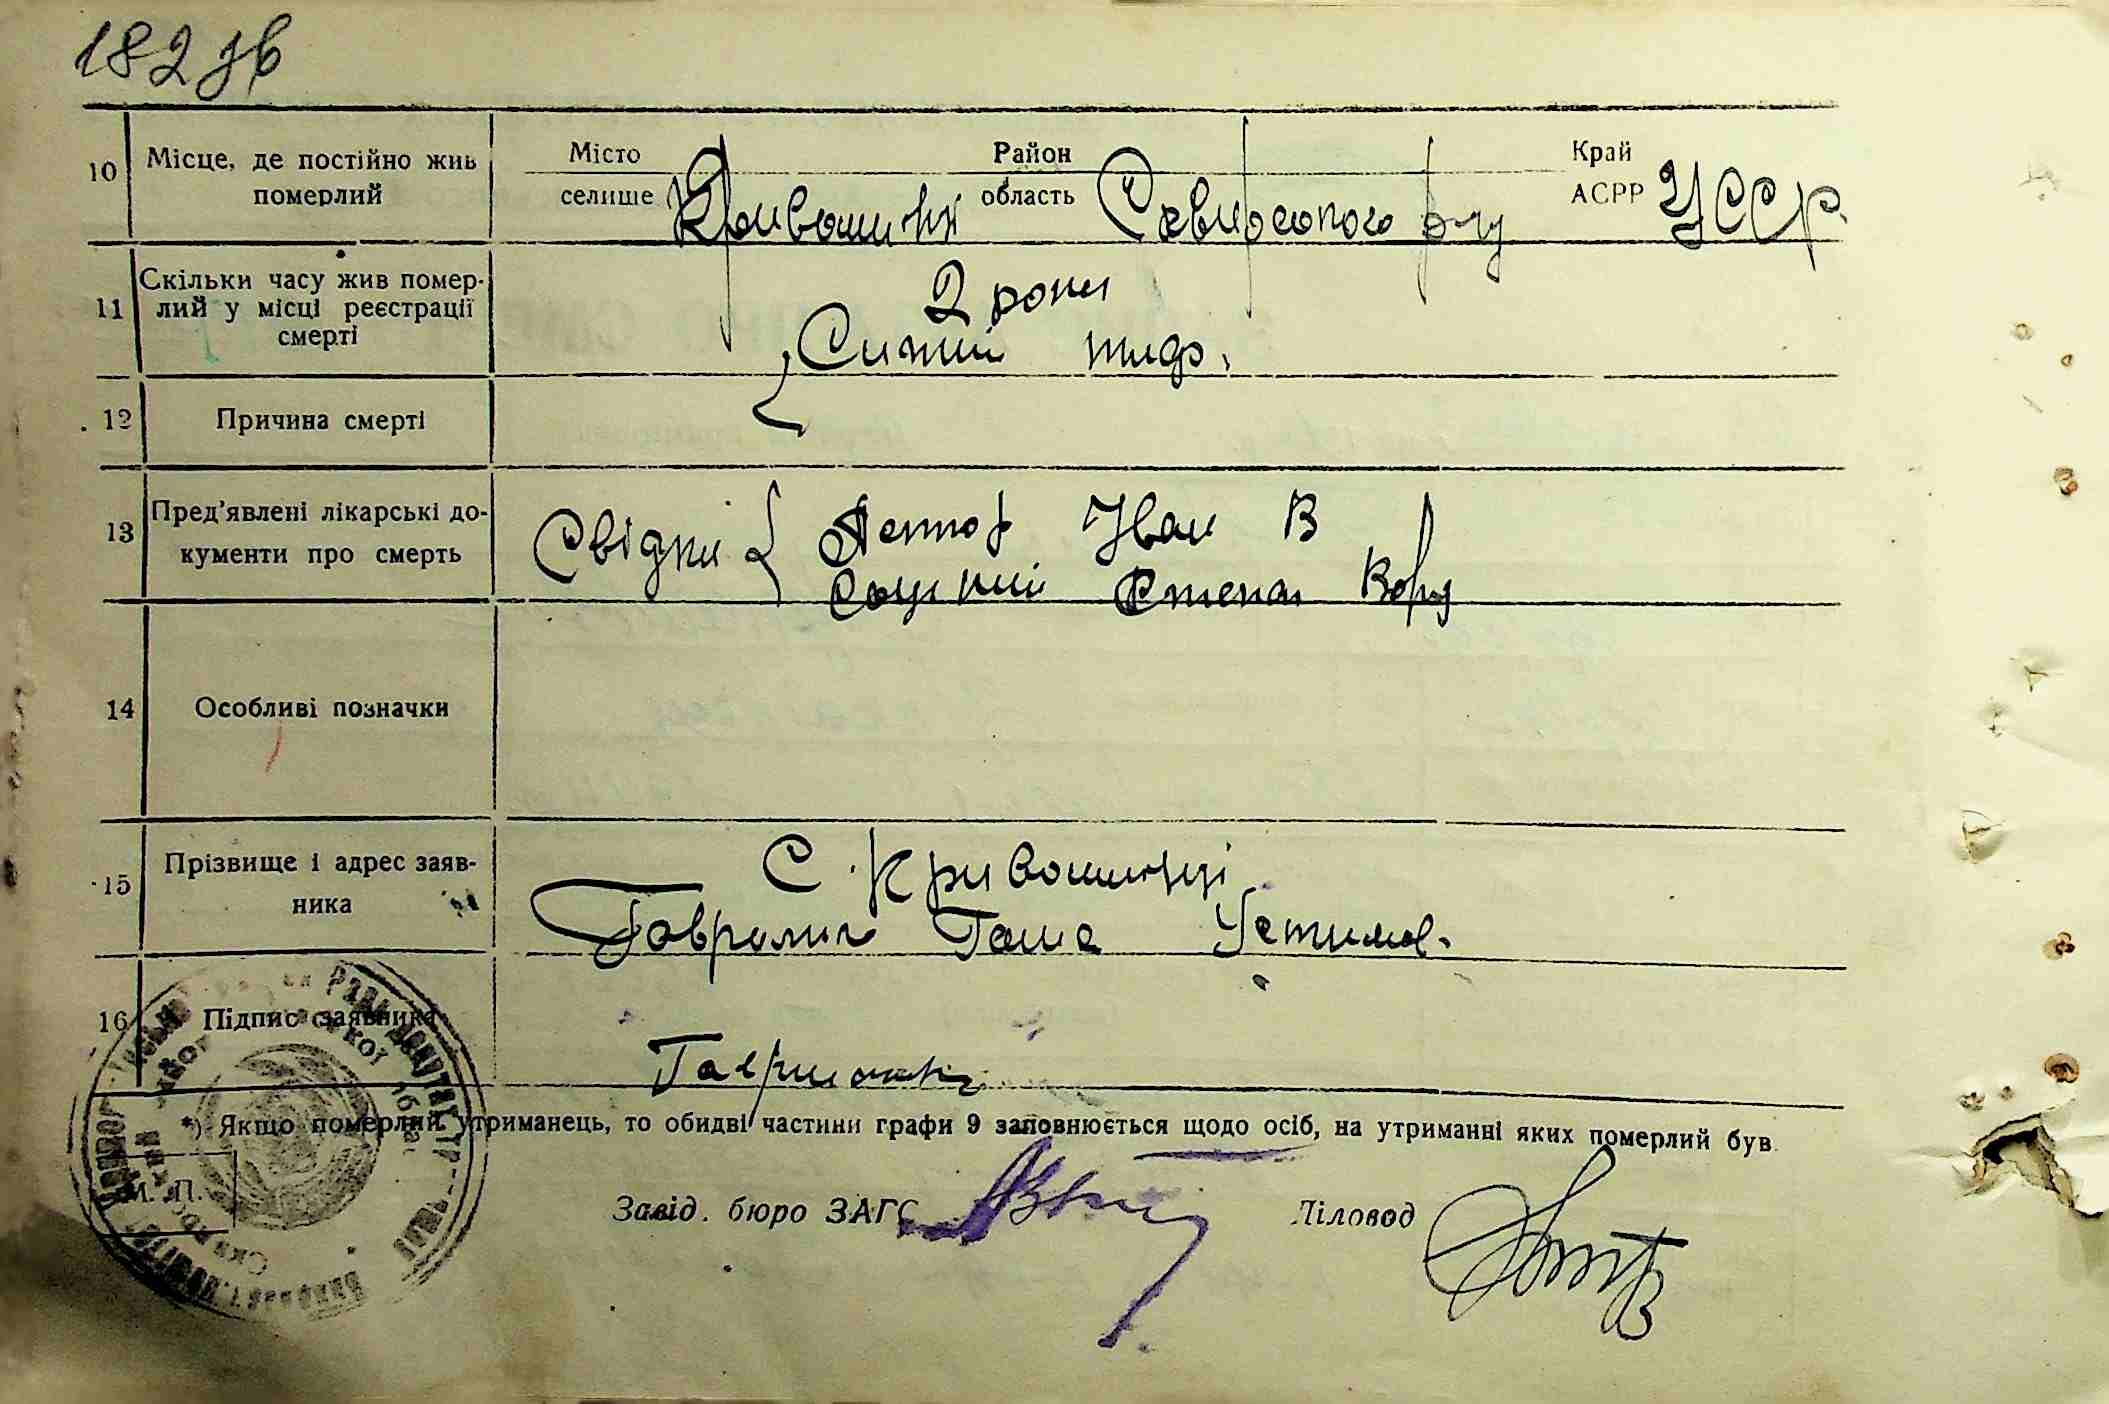 182 зв
10 Місце, де постійно жив померлий
Місто селище Кривошинці Район область Сквирського р-ну Край АСРР УССР.
11 Скільки часу жив помер-
лий у місці реєстрації
смерті
2 роки
Сипний тиф.
12 Причина смерті
13 Пред'явлені лікарські до-
кументи про смерть
Свідки Іван В
Степан
14 Особливі позначки
15 Прізвище і адрес заяв-
ника
С. Кривошинці
Гаша Устимов.
16 Підпис заявника
*) Якщо померлий утриманець, то обидві частини графи 9 заповнюється щодо осіб, на утриманні яких померлий був.
М. П.
Завід. бюро ЗАГС
Діловод